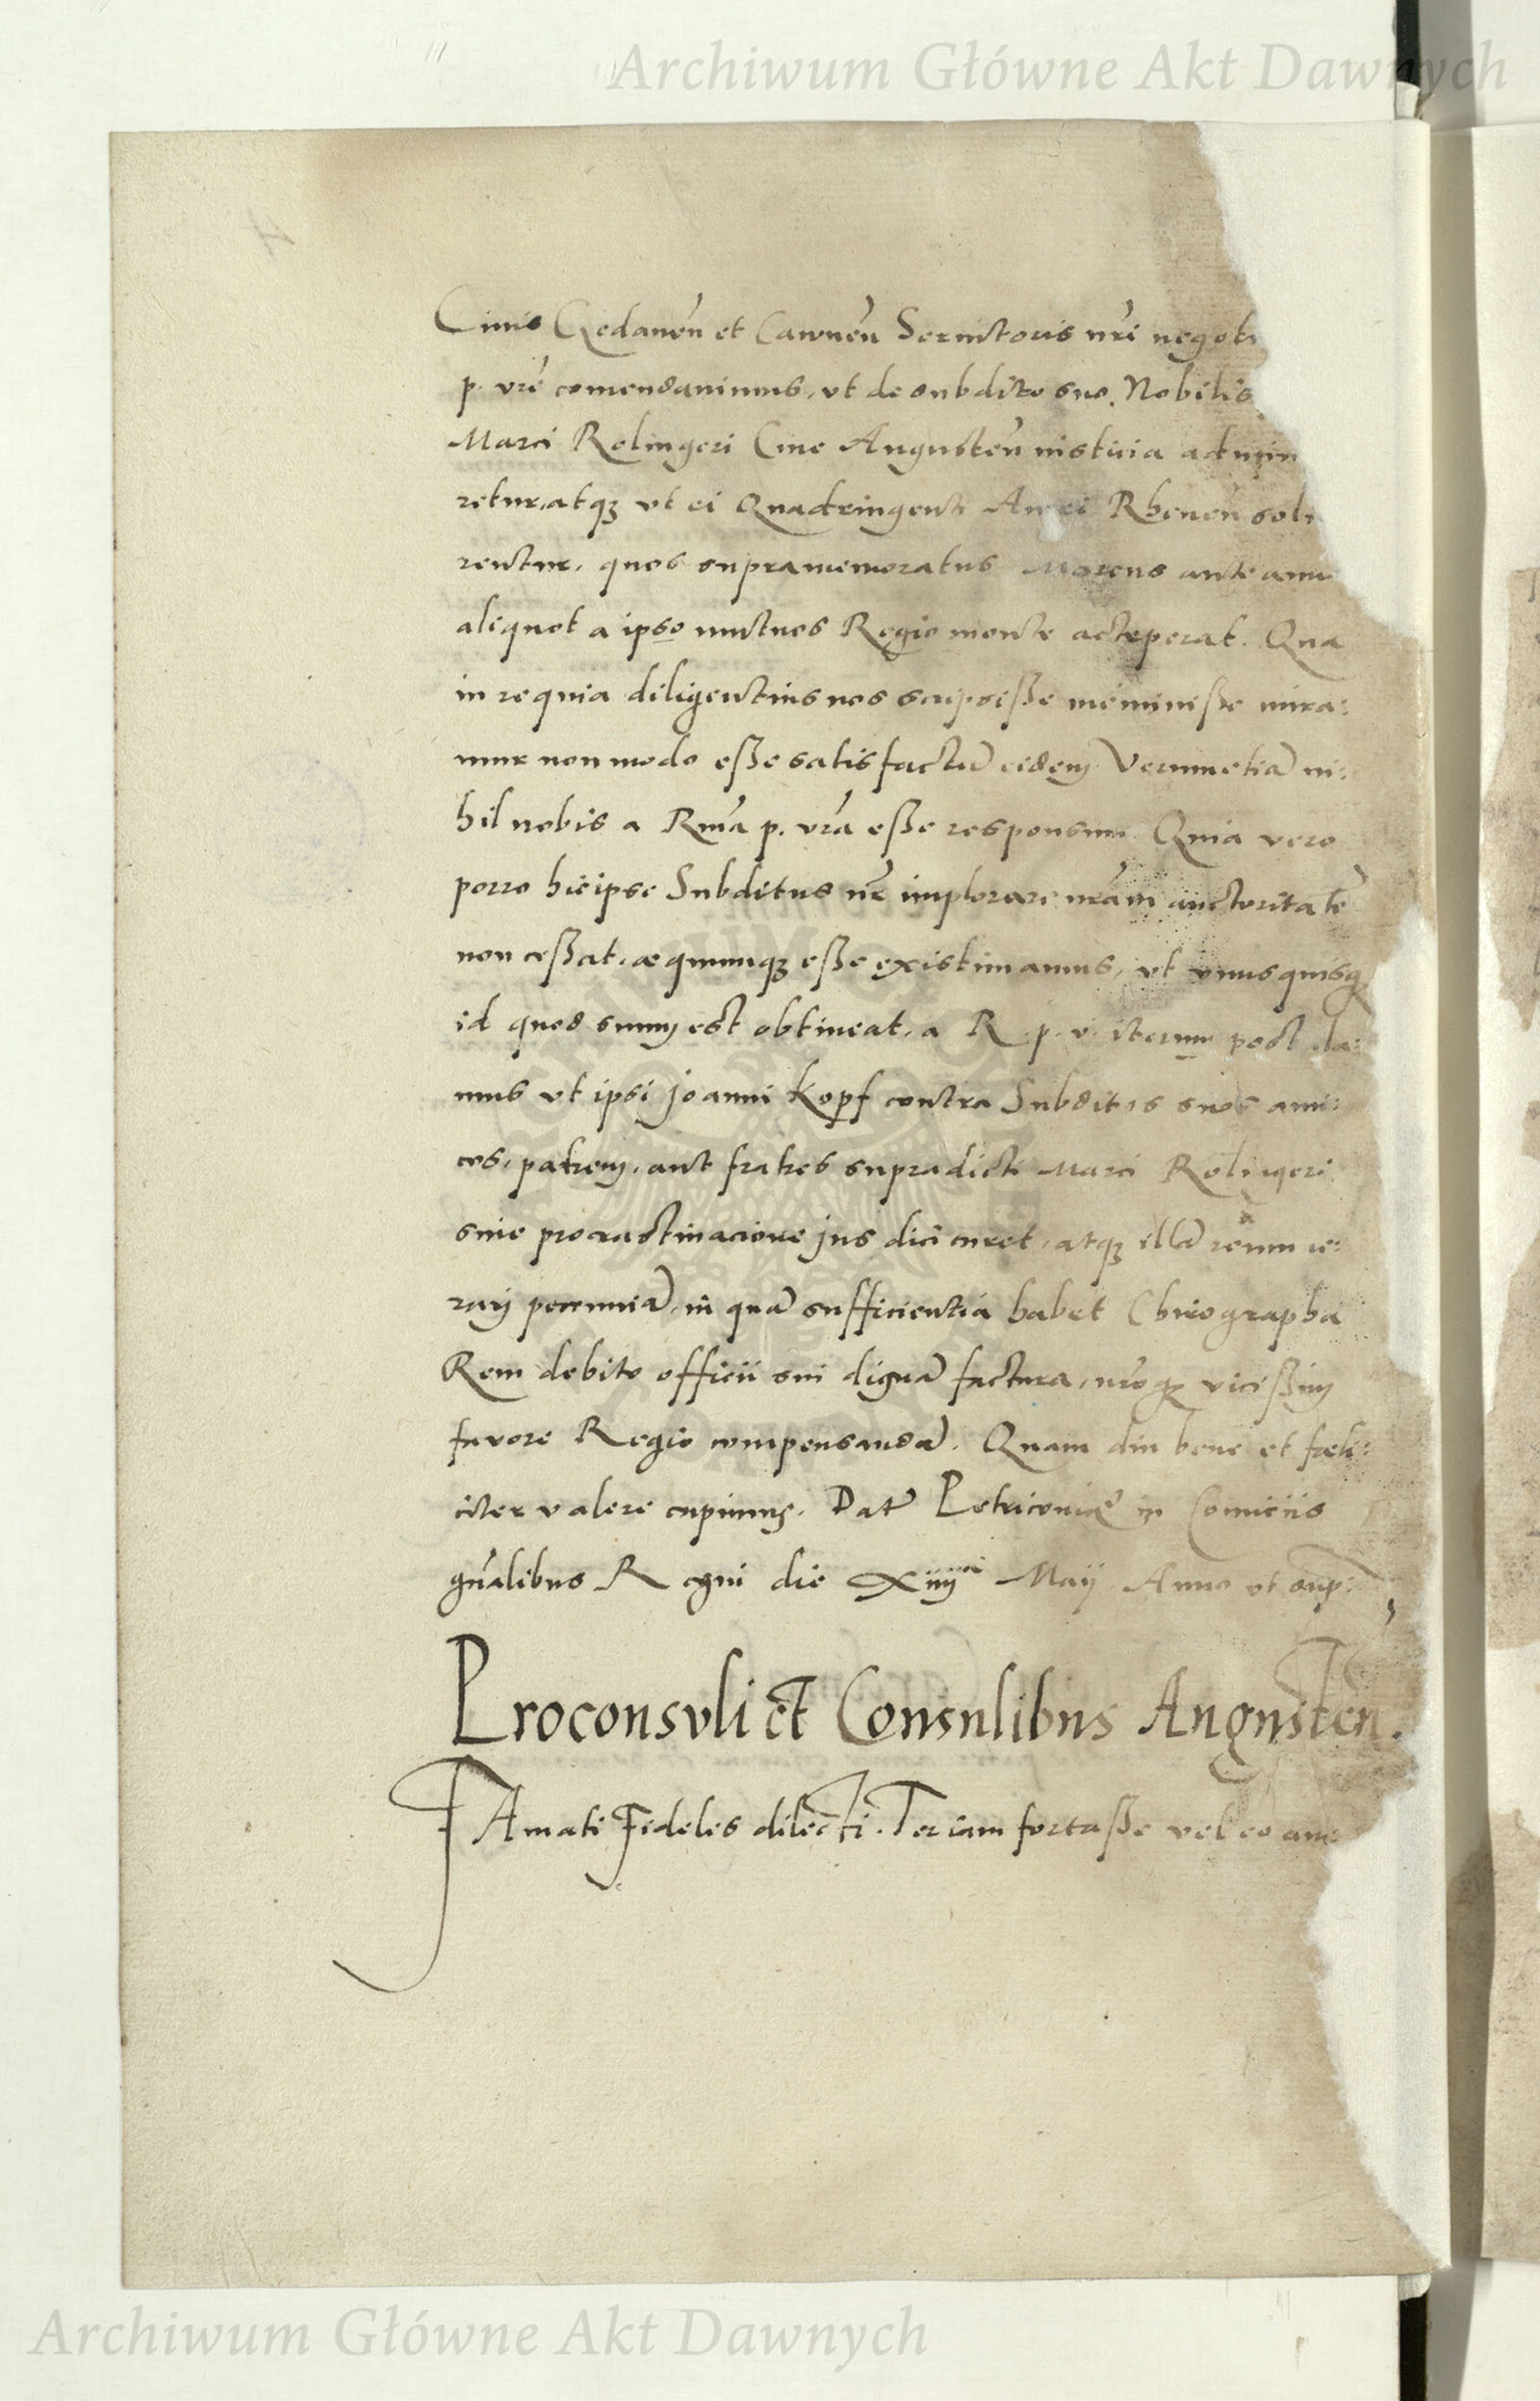 Archiwum Główne Akt Dawnych
Ciuis Gedanen̄ et Cawnen̄ Seruitoris nr̄i negoti
p. vrē comendauimus, vt de subdito suo, Nobilis
Marci Relingeri Ciue Augusten̄ iusticia admin
retur, atqꝫ vt ei Quadringenti Aurei Rhenen̄ solu
rentur, quos supramemoratus Marcus ante ann
aliquot a ipso mutuos Regiomonte acceperat. Qua
in re quia diligentius nos scripsisse meminisse mira:
mur non modo esse satisfactū eidem Verumetiā ni:
hil nobis a Rmā p. vrā esse responsum Quia vero
porro hic ipse Subditus nr̄ implorare nrām auctoritatē
non cessat, aequumqꝫ esse existimamus, vt vnusquisqꝫ
id quod suum est obtineat, a R. p. v. iterum postula:
mus vt ipsi Joanni Kopf contra Subditos suos ami:
cos, patrem, aut fratres supradicti Marci Relingeri
sine procrastinacione jus dici curet, atqꝫ illā
pecuniā, in quā sufficientia habet Chirographa
Rem debito officii sui dignā factura, nrōqꝫ vicissim
fauore Regio compensandā. Quam diu bene et fœli:
citer valere cupimus. Datū Petricouiae in Comiciis
gn̄alibus Regni die Xiiijᵃ Maij Anno vt sup:
Proconsvli et Consulibus Augusten̄.
Famati Fideles dilecti. Ter iam fortasse vel eo am
Archiwum Główne Akt Dawnych